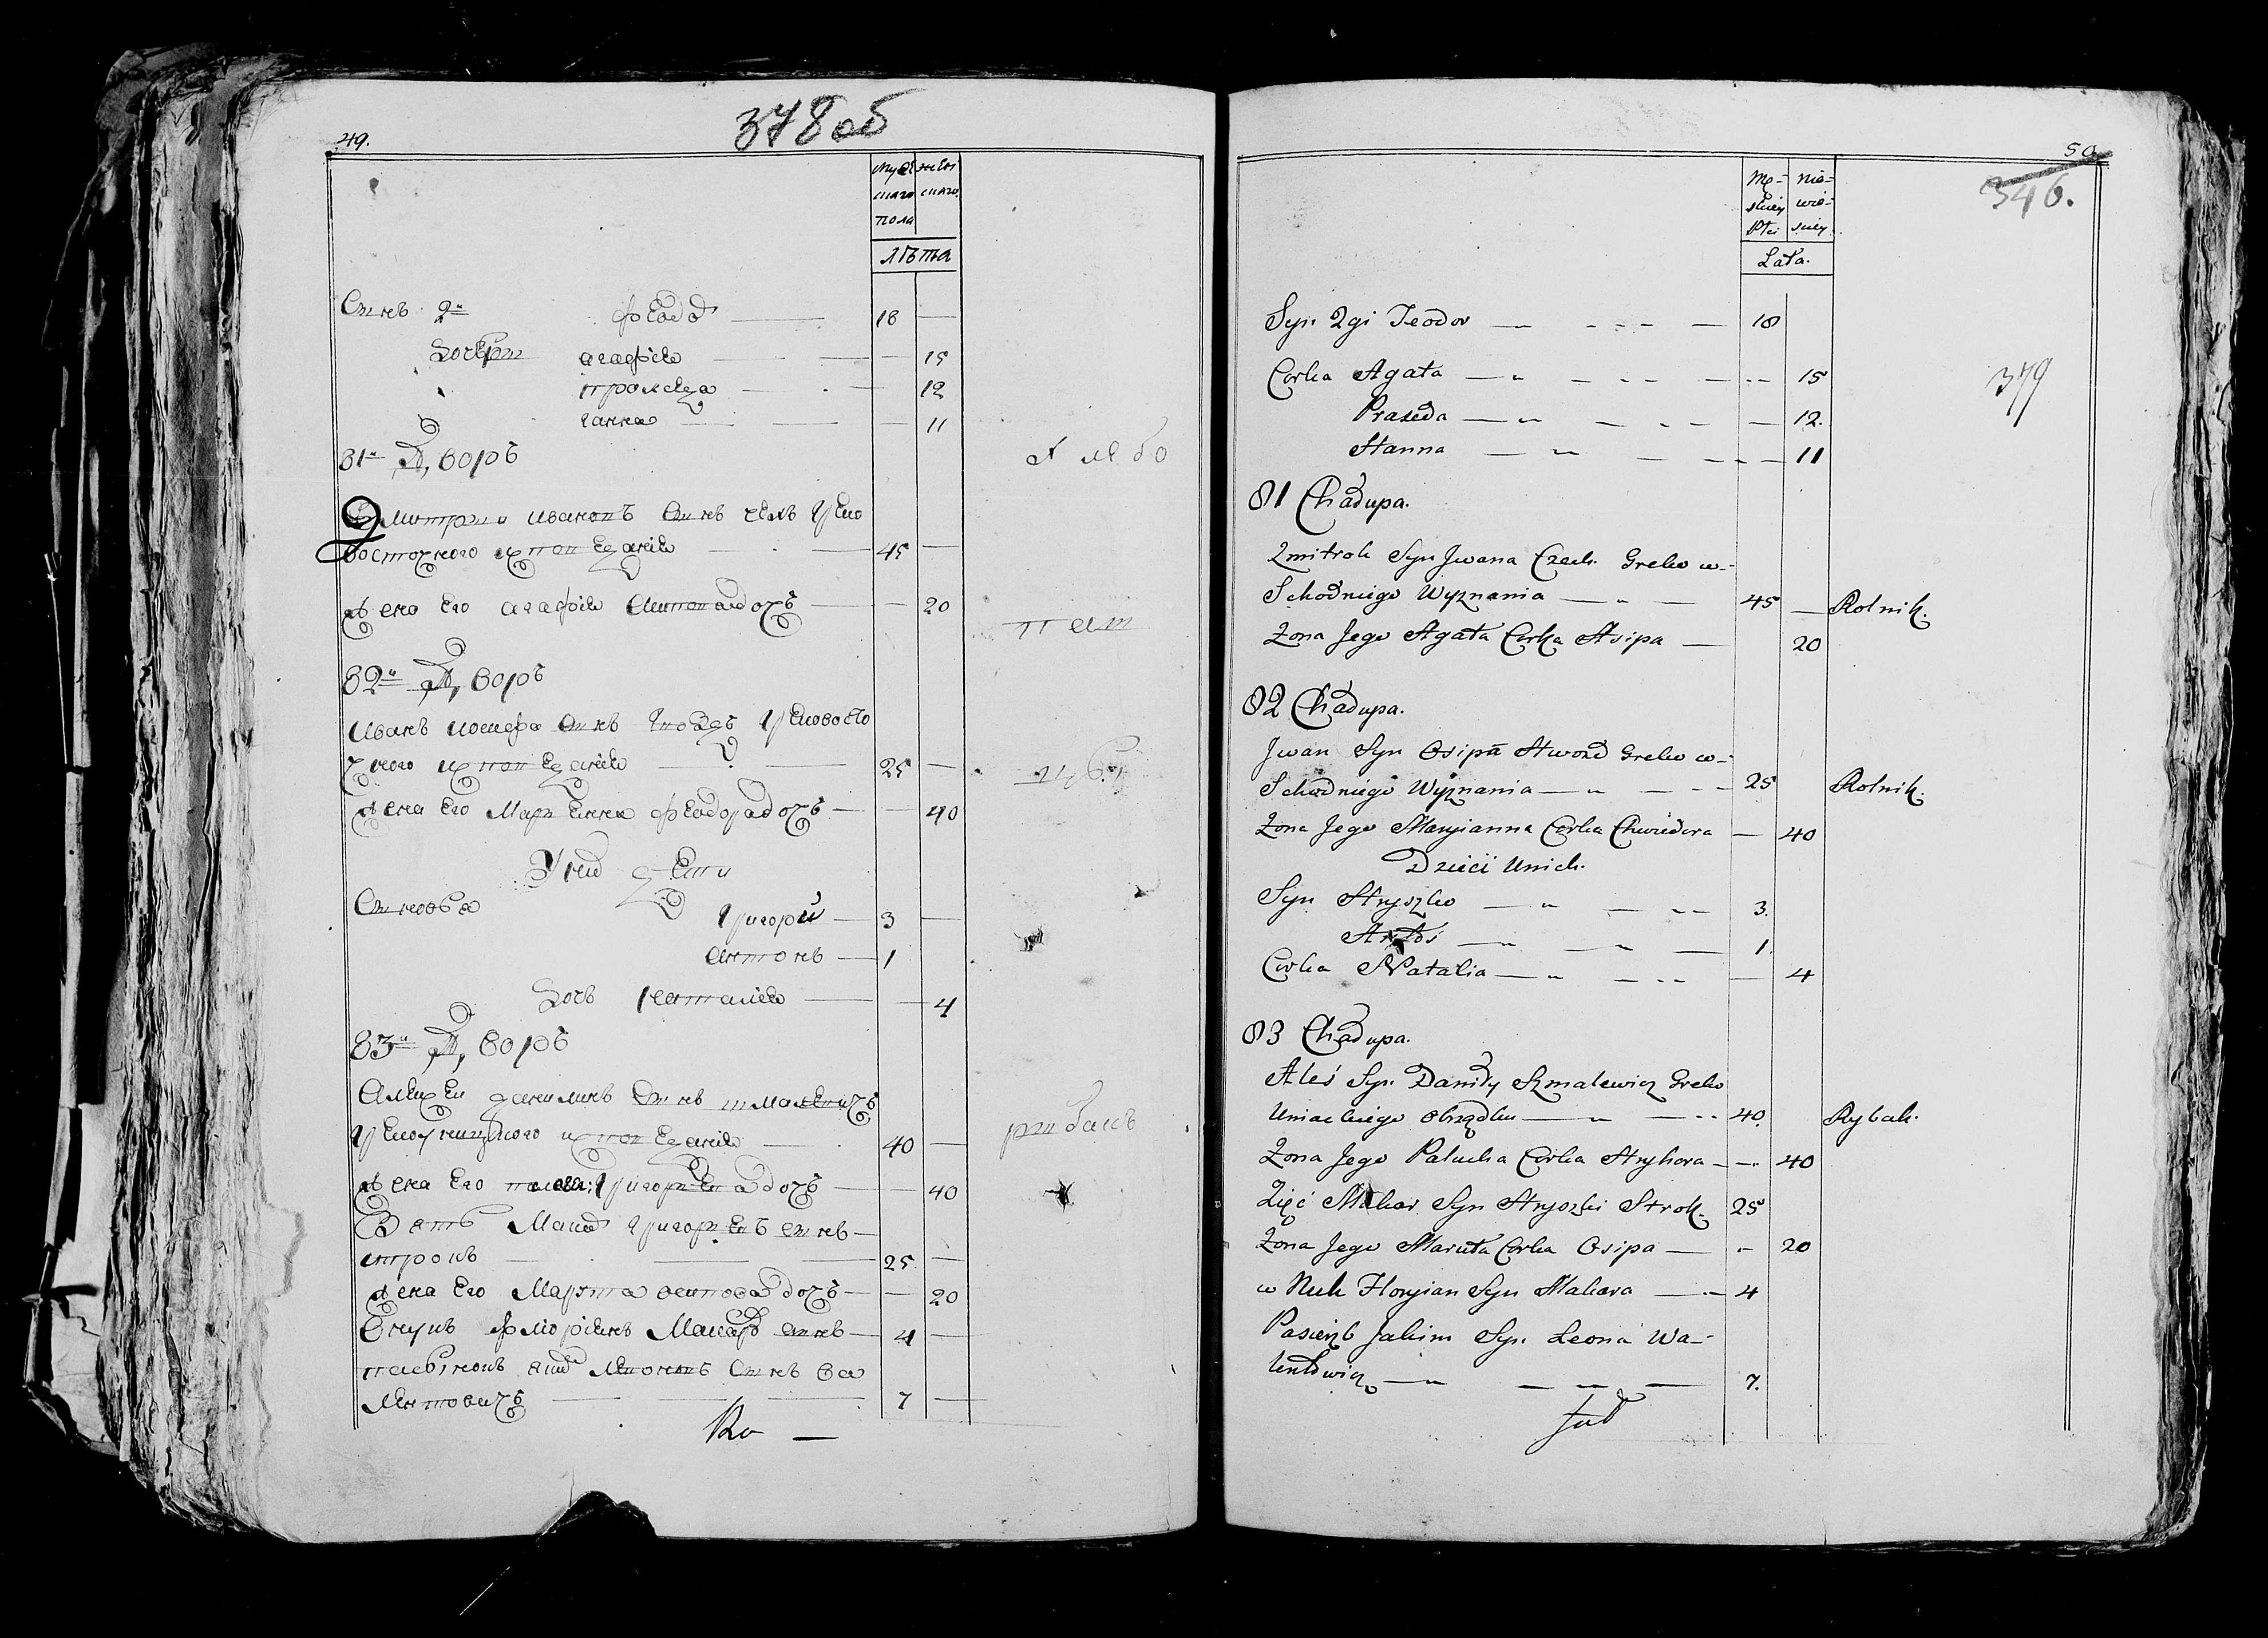 378 об
49.
мужескаго пола
женскаго
лѣта
Сынъ 2й Феодоръ — 18 —
Дочери агафія — — 15
праксѣда — — 12
ганна — — 11
81й Дворъ
Дмитрій ивановъ Сынъ чехъ греко
восточнаго исповеданія — 45 —
жена его агафія — 20
82й Дворъ
иванъ иосифа Сынъ греково
точного исповеданія — 25 —
жена его Маріенна феодора дочь — — 40
У них дети
Сыновья
григорий — 3 —
антонъ — 1
Дочь наталія — — 4
83й Дворъ
Алексей данилинъ Сынъ шмалевичъ
греко исповеданія — 40 —
рыбакъ
жена его дочь — — 40
Зять Макаръ григорьевъ сынъ —
строкъ — 25 —
жена его Марута осипова дочь — — 20
Внукъ флоріянъ Макара сынъ — 4 —
Сынъ ва
лентовичъ — 7 —
50
346.
379
Mę-skiey Płci
nie-wie-sciey
Lata.
Syn 2gi Teodor — „ — 18
Corka Agata — „ — 15
Praxeda — „ — 12.
Hanna — „ — 11
81 Chałupa.
Zmitrok Syn Jwana Czech Greko w-
Schodniego Wyznania — „ — 45 — Rolnik.
Zona Jego Agata Corka Asipa — 20
82 Chałupa.
Jwan Syn Osipa Hwozd Greko w-
Schodniego Wyznania — „ — 25 Rolnik.
Zona Jego Maryianna Corka Chwiedora — 40
Dzieci Unich.
Syn Hryszko — „ — 3.
Antoś — „ — 1.
Corka Natalia — „ — 4
83 Chałupa.
Aleś Syn Daniły Szmalewicz Greko
Uniackiego Obrządku — „ — 40. Rybak.
Zona Jego Palucha Corka Hryhora — 40
Zięć Makar Syn Hryszki Strok. 25
Zona Jego Maruta Corka Osipa — 20
w Nuk Floryian Syn Makara — 4
Pasierzb Jakim Syn Leona Wa-
lentowicz — „ — 7.